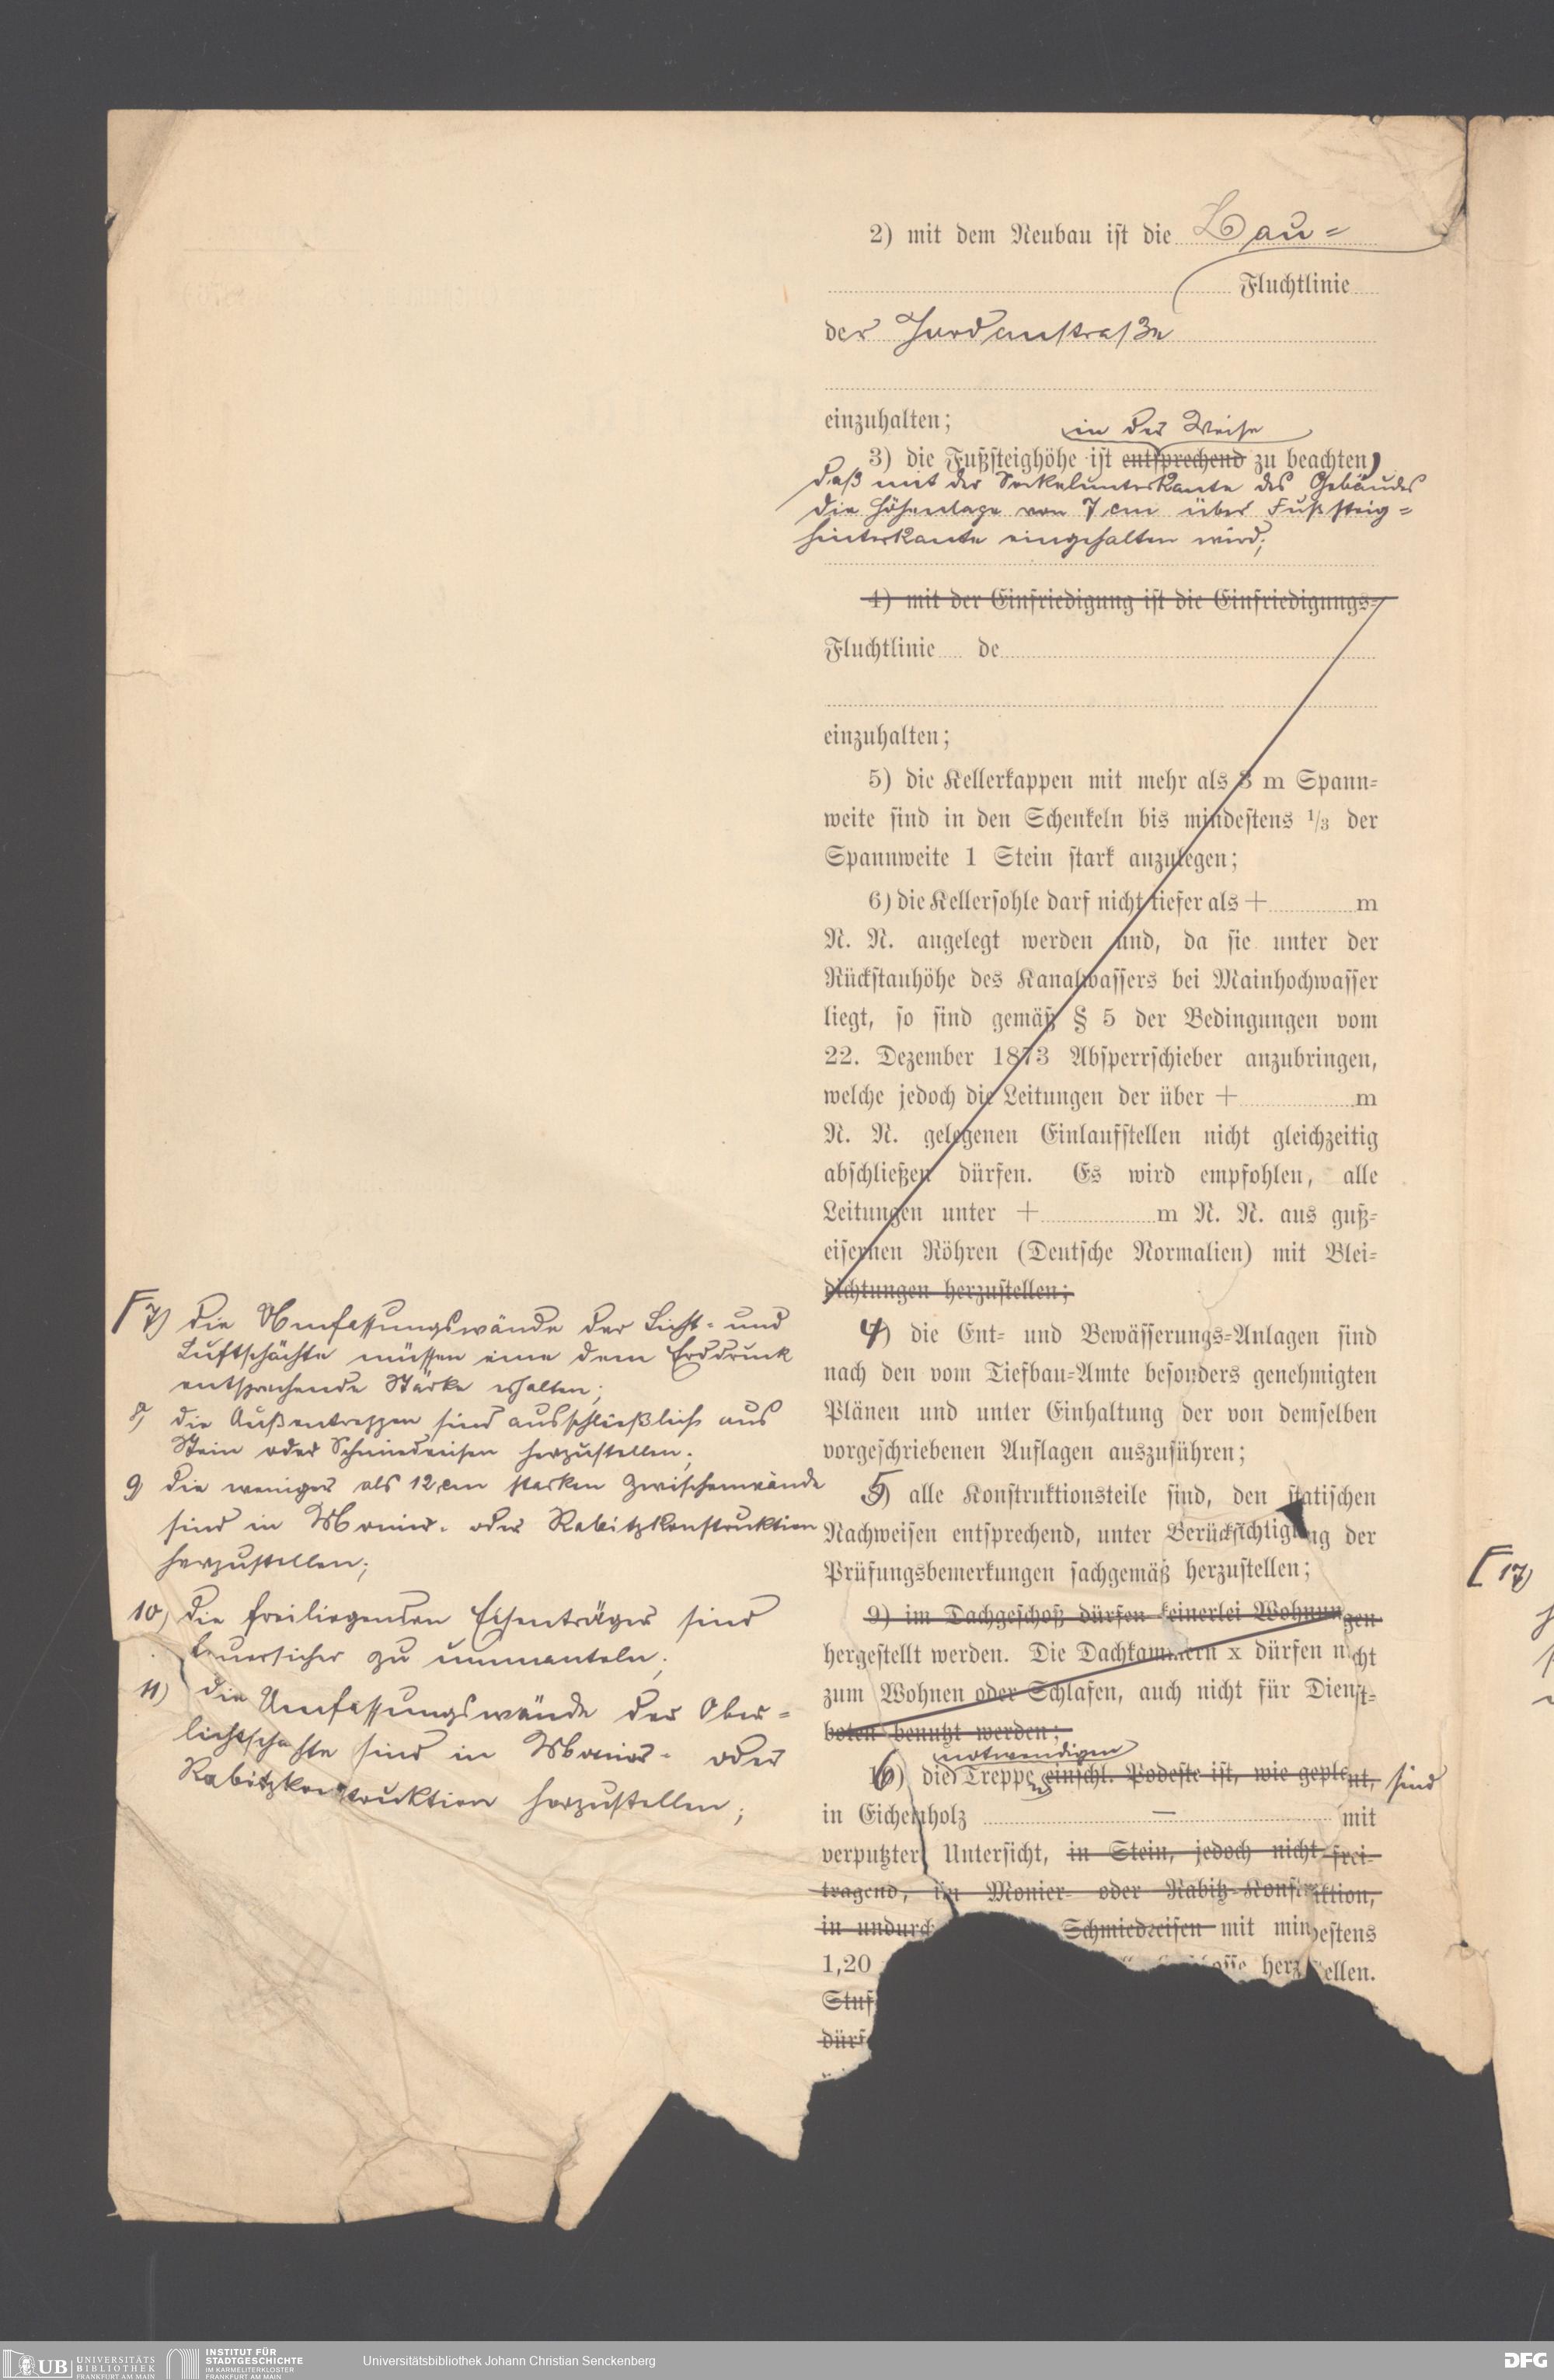 2) mit dem Neubau ist die Bau=
Fluchtlinie
der Jordanstraße
einzuhalten;
in der Weise
3) die Fußsteighöhe ist entsprechend zu beachten,
daß mit der Sockelunterkante des Gebäudes
die Höhenlage von 7 cm über Fußsteig=
hinterkante eingehalten wird;
4) mit der Einfriedigung ist die Einfriedigungs=
Fluchtlinie de
einzuhalten;
5) die Kellerkappen mit mehr als 3 m Spann=
weite sind in den Schenkeln bis mindestens 1/3 der
Spannweite 1 Stein stark anzulegen;
6) die Kellersohle darf nicht tiefer als + m
N. N. angelegt werden und, da sie unter der
Rückstauhöhe des Kanalwassers bei Mainhochwasser
liegt, so sind gemäß § 5 der Bedingungen vom
22. Dezember 1873 Absperrschieber anzubringen,
welche jedoch die Leitungen der über + m
N. N. gelegenen Einlaufstellen nicht gleichzeitig
abschließen dürfen. Es wird empfohlen, alle
Leitungen unter + m N. N. aus guß=
eisernen Röhren (Deutsche Normalien) mit Blei=
dichtungen herzustellen;
4) die Ent= und Bewässerungs=Anlagen sind
nach den vom Tiefbau=Amte besonders genehmigten
Plänen und unter Einhaltung der von demselben
vorgeschriebenen Auflagen auszuführen;
5) alle Konstruktionsteile sind, den statischen
Nachweisen entsprechend, unter Berücksichtigung der
Prüfungsbemerkungen sachgemäß herzustellen;
9) im Dachgeschoß dürfen keinerlei Wohnungen
hergestellt werden. Die Dachkammern x dürfen nicht
zum Wohnen oder Schlafen, auch nicht für Dienst=
boten benutzt werden;
notwendigen
6) die Treppen einschl. Podeste ist, wie geplant, sind
in Eichenholz — mit
verputzter Untersicht, in Stein, jedoch nicht frei=
tragend, in Monier= oder Rabitz=Konstruktion,
in undurch Schmiedeeisen mit mindestens
1,20 herzustellen.
Stuf
dürf
[7) die Umfassungswände der Licht= und
Luftschächte müssen eine dem Erddruck
entsprechende Stärke erhalten;
8) die Außentreppen sind ausschließlich aus
Stein oder Schmiedeeisen herzustellen;
9) die weniger als 12 cm starken Zwischenwände
sind in Monier= oder Rabitzkonstruktion
herzustellen;
10) die freiliegenden Eisenträger sind
feuersicher zu ummanteln;
11) die Umfassungswände der Ober=
lichtschachte sind in Monier= oder
Rabitzkonstruktion herzustellen;
[17)
UB UNIVERSITÄTS
BIBLIOTHEK
FRANKFURT AM MAIN
INSTITUT FÜR
STADTGESCHICHTE
IM KARMELITERKLOSTER
FRANKFURT AM MAIN
Universitätsbibliothek Johann Christian Senckenberg
DFG